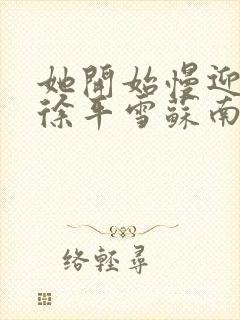 她開始慢迎
徐平雪蘇南
络輕尋